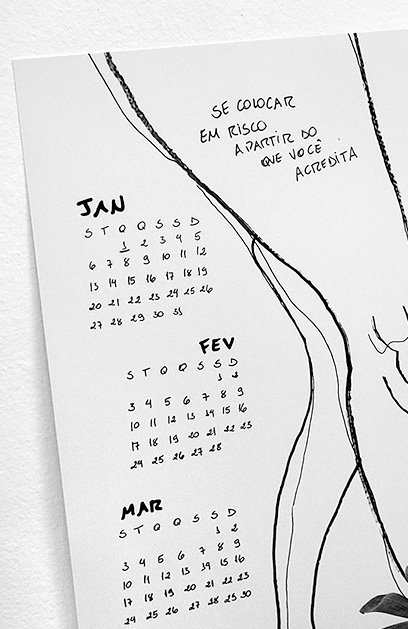 SE COLOCAR
EM RISCO
APARTIR DO
QUE VOCÊ
ACREDITA
JAN
S T Q Q S S D
1 2 3 4 5
6 7 8 9 10 11 12
13 14 15 16 17 18 19
20 21 22 23 24 25 26
27 28 29 30 31
FEV
S T Q Q S S D
1 2
3 4 5 6 7 8 9
10 11 12 13 14 15 16
17 18 19 20 21 22 23
24 25 26 27 28
MAR
S T Q Q S S D
1 2
3 4 5 6 7 8 9
10 11 12 13 14 15 16
17 18 19 20 21 22 23
24 25 26 27 28 29 30